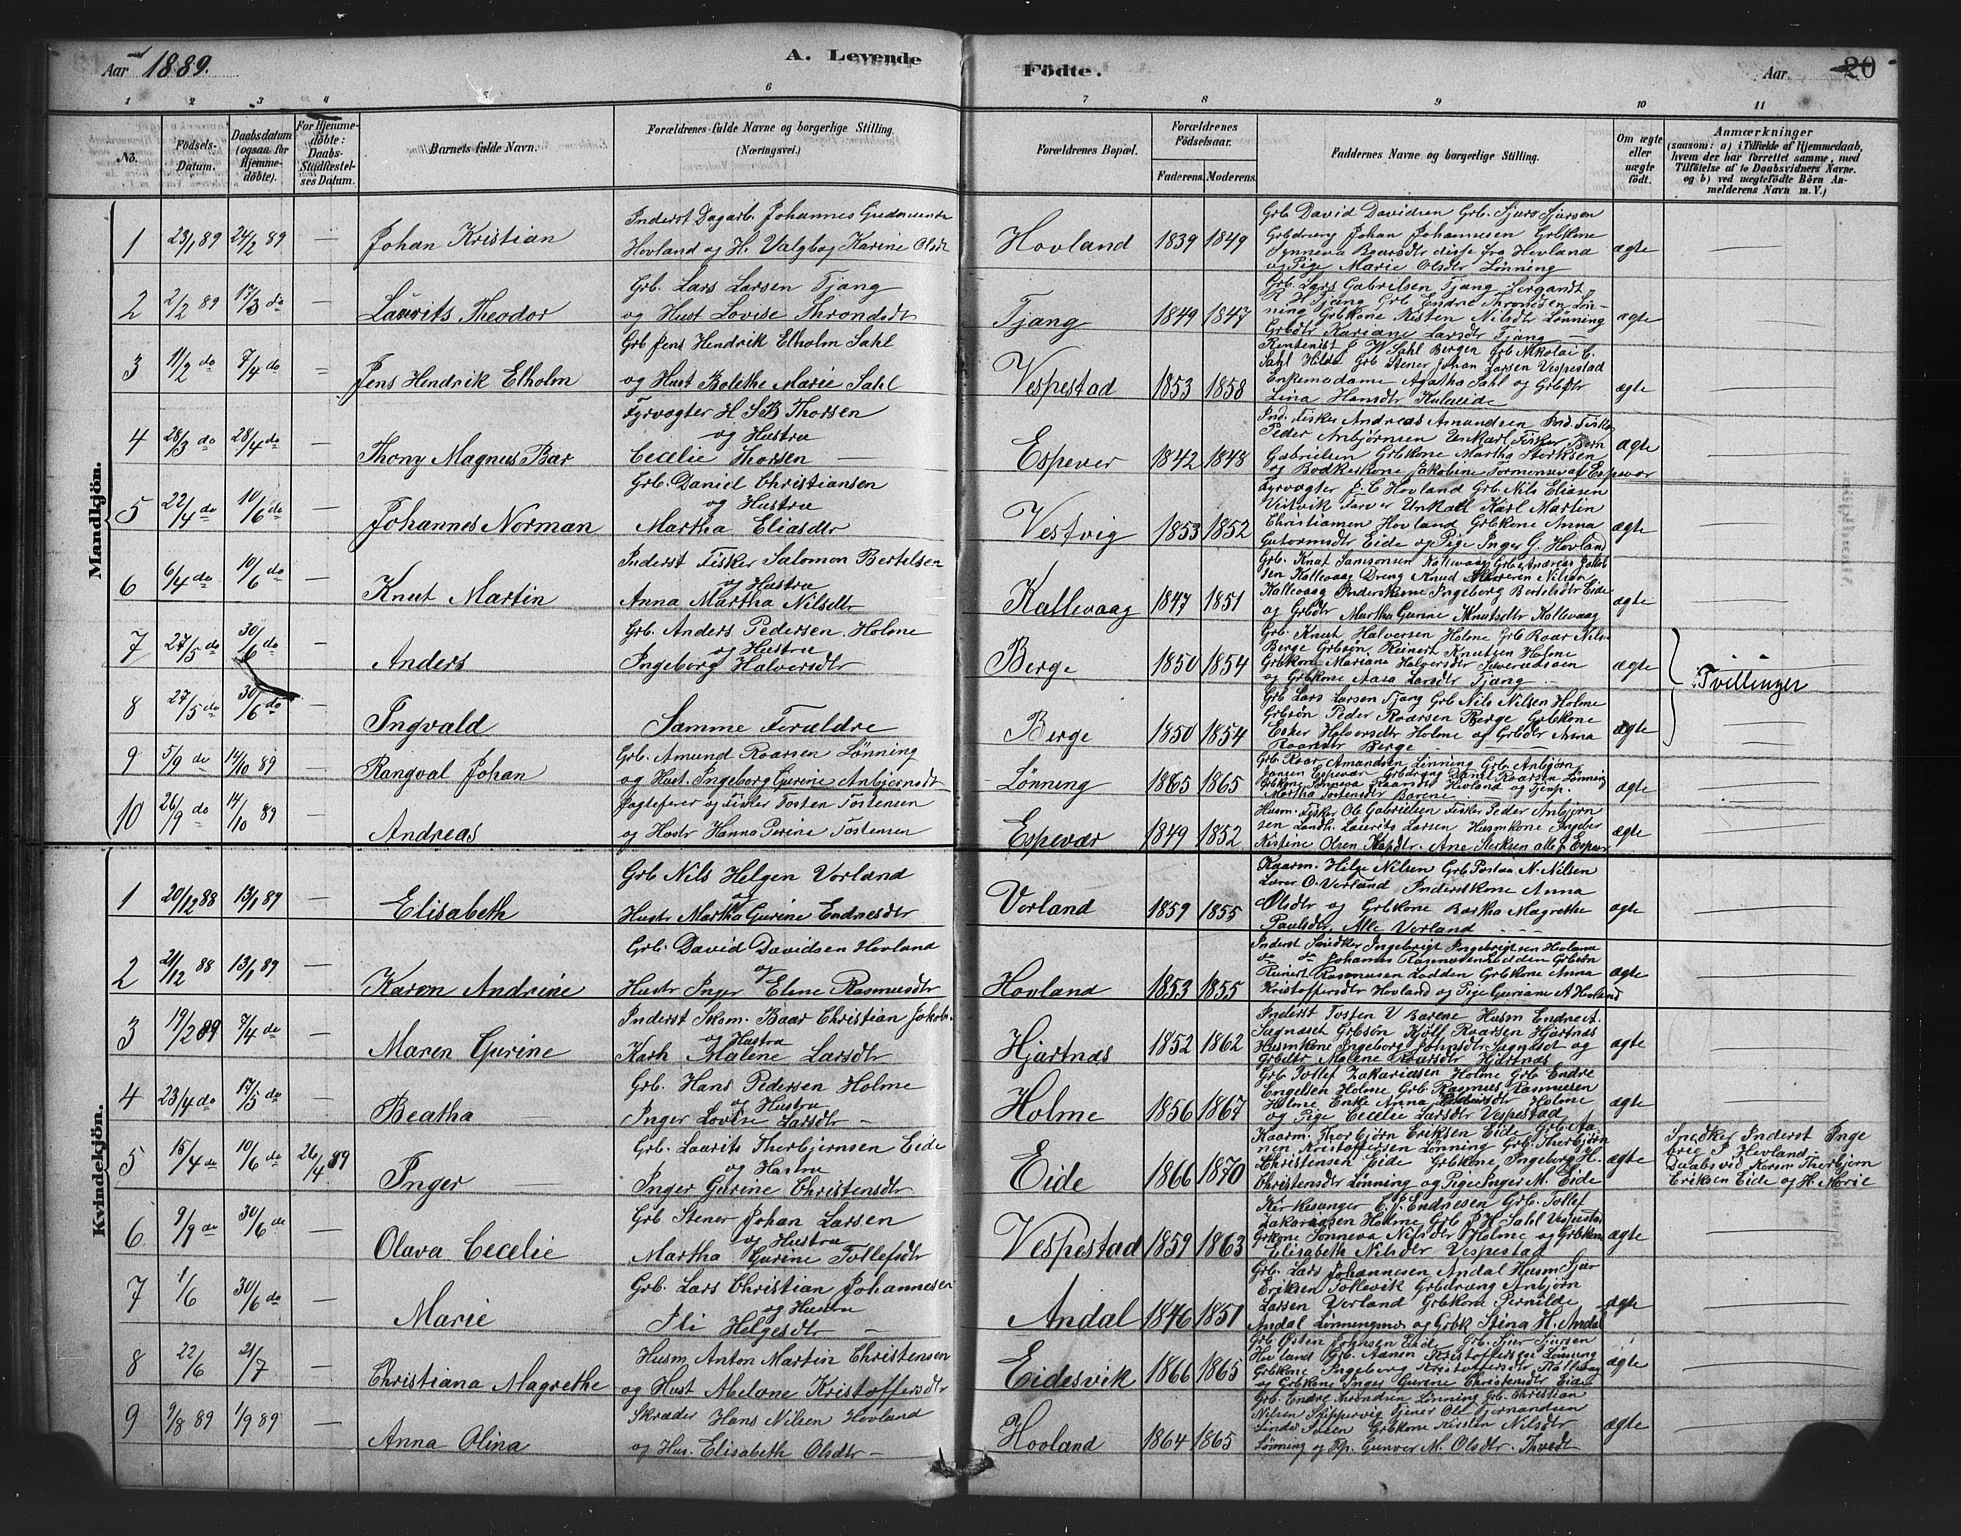 Aar 1889.
A. Levende
Födte.
Aar
20
1 2 3 4 5 6 7 8 9 10 11
No.
Födsels-Datum.
Daabsdatum (ogsaa for Hjemmedöbte).
For Hjemmedöbte: Daabs-Stadfæstelses Datum.
Barnets fulde Navn.
Forældrenes fulde Navne og borgerlige Stilling. (Næringsvei.)
Forældrenes Bopæl.
Forældrenes Födselsaar.
Faderens. Moderens.
Faddernes Navne og borgerlige Stilling.
Om ægte eller uægte födt.
Anmærkninger
(saasom: a) i Tilfælde af Hjemmedaab, hvem der har forrettet samme, med Tilföielse af to Daabsvidners Navne. og b) ved uægtefödte Börn Anmelderens Navn m. V.)
Mandkjön.
1 23/1 89 24/2 89 — Johan Kristian
Inderst Dagarb. Johannes
Hovland og H. Valgbog Karine Olsdt
Hovland 1839 1849
Grb David Davidsen Grb. Sjurs Sjursen
Grbdreng Johan Johannesen Grbkone
fra Hovland
og Pige Marie Olsdtr Lønning
ægte
2 2/2 89 17/3 do — Laurits Theodor
Grb. Lars Larsen Tjang
og Hust Lovise Throndsdt
Tjang 1849 1847
Grb. Lars Gabrielsen Tjang Sergandt
Tjang Grb Endre Throndsen Løn-
ning Grbkone Kisten Nilsdtr Lønning
Grbdtr Kariane Larsdtr Tjang
ægte
3 11/2 do 7/4 do Jens Hendrik Elholm
Grb Jens Hendrik Elholm Sahl
og Hust Bolethe Marie Sahl
Vespestad 1853 1858
Rentenist E W Sahl Bergen Grb Nikolai C.
Sahl Hilda Grb Stener Johan Larsen Vespestad
Enkemadame Agatha Sahl og Grbdtr
Lina Hansdtr Kuleseide
ægte
4 28/3 do 28/4 do — Thony Magnus Bar
Fyrvogter H S B Thorsen
og Hustru
Cecelie Thorsen
Espever 1842 1848
Ind. Fisker Andreas Amundsen Ind. Fisker
Peder Anbjørnsen Unkarl Fisker Bern
Gabrielsen Grbkone Martha Storksen
og Bødkerkone Jakobine Tormonsen af Espevær
ægte
5 22/4 do 10/6 do — Johannes Norman
Grb. Daniel Christiansen
og Hustru
Martha Eliasdtr
Vestvig 1853 1852
Fyrvogter J. C Hovland Grb. Nils Eliasen
Vikvik Unkarl Karl Martin
Christiansen Hovland Grbkone Anna
Gutormsdtr Eide og Pige Inger G. Hovland
ægte
6 6/4 do 10/6 do — Knut Martin
Inderst Fisker Salomon Bertelsen
og Hustru
Anna Martha Nilsdtr
Kallevaag 1847 1851
Grb. Knut Samsonsen Kallevaag Grb Andreas Jakob-
sen Kallevaag Dreng Knud Nilsen
Kallevaag Inderstkone Ingeborg Bertelsdtr Eide
og Grbdtr Martha Gurine Knutsdtr Kallevaag
ægte
7 27/5 do 30/6 do — Anders
Grb. Anders Pedersen Holme
og Hustru
Ingeborg Halversdtr
Berge 1850 1854
Grb. Knut Halversen Holme Grb Roar Nils-
Berge Grbsøn Reinert Knutsen Holme
Grbkone Mariane Halversdtr
og Grbkone Aasa Larsdtr Tjang
ægte
Tvillinger
8 27/5 do 30/6 do Ingvald
Samme Foræeldre
Berge 1850 1854
Grb Lars Larsen Tjang Grb Nils Nilsen Holme
Grbsøn Peder Roarsen Berge Grbkone
Ester Halversdtr Holme og Grbdtr Anna
Roarsdtr Berge
ægte
9 5/9 do 14/10 89 Rangval Johan
Grb. Amund Roarsen Lønning
og Hust. Ingeborg Gurine Anbjørnsdt
Lønning 1865 1865
Grb. Roar Amundsen Lønning Grb. Anbjørn
Jansen Espevær Grbdreng Roarsen Lønning
Grbkone Hovland og
Martha Tostensdtr Barene
ægte
10 26/9 do 14/10 89 Andreas
Jagtefører og Fisker Tosten Tostensen
og Hustr Hanna Perine Tostensen
Espevær 1849 1852
Husm. Fisker Ole Gabrielsen Fisker Peder Anbjørn
sen Landh. Laurits Larsen Husmkone Ingebor
Kistine Olsen Ane Storksen alle f. Espevær
ægte
Kvindekjön.
1 20/12 88 13/1 89 — Elisabeth
Grb Nils Helgen Vorland
og
Hustr Martha Gurine Endresdtr
Vorland 1859 1855
Kaarm. Helge Nilsen Grb N. Nilsen
Lærer O. Vorland Inderstkone Anna
Olsdtr og Grbkone Magrethe
Paulsdtr, Alle Vorland
ægte
2 21/12 88 13/1 89 — Karen Andrine
Grb. David Davidsen Hovland
og
Hustr Inger Eline Rasmusdtr
Hovland 1853 1855
Inderst Snedker Ingebrigt Ingebrigtsen Hovland
do do Johannes Rasmusen Lodden Grbsøn
Reinert Rasmusen Lodden Grbkone Anna
Kristoffersdtr Hovland og Pige Guriane A Hovland
ægte
3 19/2 89 7/4 do — Maren Gurine
Inderst Skom. Baar Christian Jakob-
og Hustru
Kath Malene Larsdtr
Hjartnæs 1852 1862
Inderst Tosten V Barene Husm Endre
Sagnæset Grbsøn Kjølf Roarsen Hjartnæs
Husmkone Ingeborg Johnsdtr Sagnæset og
Grbdtr Malene Roarsdtr Hjartnæs
ægte
4 23/4 do 17/5 do — Beatha
Grb. Hans Pedersen Holme
og Hustru
Inger Lovise Larsdtr
Holme 1856 1867
Grb Tollef Zakariasen Holme Grb Endre
Engelsen Holme Grb Rasmus Rasmusen
Holme Enke Anna Holme
og Pige Cecelie Larsdtr Vespestad
ægte
5 15/4 do 10/6 do 26/4 89 Inger
Grb. Laurits Thorbjørnsen Eide
og Hustru
Inger Gurine Christensdtr
Eide 1866 1870
Kaarm. Thorbjørn Eriksen Eide Grb Aa-
nen Kristoffersen Lønning Grb. Thorbjørn
Christensen Eide Grbkone Ingeborg H.
Christensdtr Lønning og Pige Inger M. Eide
ægte
Snedker Inderst Inge
brig I Hovland
Daabsvid Kaarm Thorbjørn
Eriksen Eide og H. Marie
6 9/9 do 30/6 do — Olava Cecelie
Grb Stener Johan Larsen
og Hustru
Martha Gurine Tollefsdtr
Vespestad 1859 1863
Kirkesanger C. J. Endresen Grb. Tollef
Zakariasen Holme Grb J H Sahl Vespestad
Grbkone Sønneva Nilsdtr Holme og Grbkone
Elisabeth Nilsdtr Vespestad
ægte
7 1/6 30/6 do — Marie
Grb. Lars Christian Johannesen
og Hustru
Sli Helgesdtr
Andal 1846 1851
Grb. Lars Johannesen Andal Husm Sjur
Eriksen Tollevik Grbdreng Anbjørn
Larsen Vorland Grbkone Pernilde
Andal Lønningsnes og Grbk Stina H. Andal
ægte
8 22/6 21/7 — Christiana Magrethe
Husm. Anton Martin Christensen
og Hust Melone Kristoffersdtr
Eidesvik 1866 1865
Grb. Østen Johnsen Eide Grb. Sjur Sjursen
Hovland Grb. Aanen Kristoffersen Lønning
Grbkone Ingeborg Kristoffersdtr Kallevaag
og Grbkone Inger Gurine Christensdtr Eide
ægte
9 9/8 89 1/9 89 — Anna Olina
Skræder Hans Nilsen Hovland
og Hus. Elisabeth Olsdtr
Hovland 1864 1865
Grb. Endre Throndsen Lønning Grb. Christian
Nilsen Skippervig Tjener Ole Tornandsen
Lindøsveen Grbkone Kirsten Nilsdtr
Lønning og Pp. Gunver M. Olsdtr. Thvedt
ægte